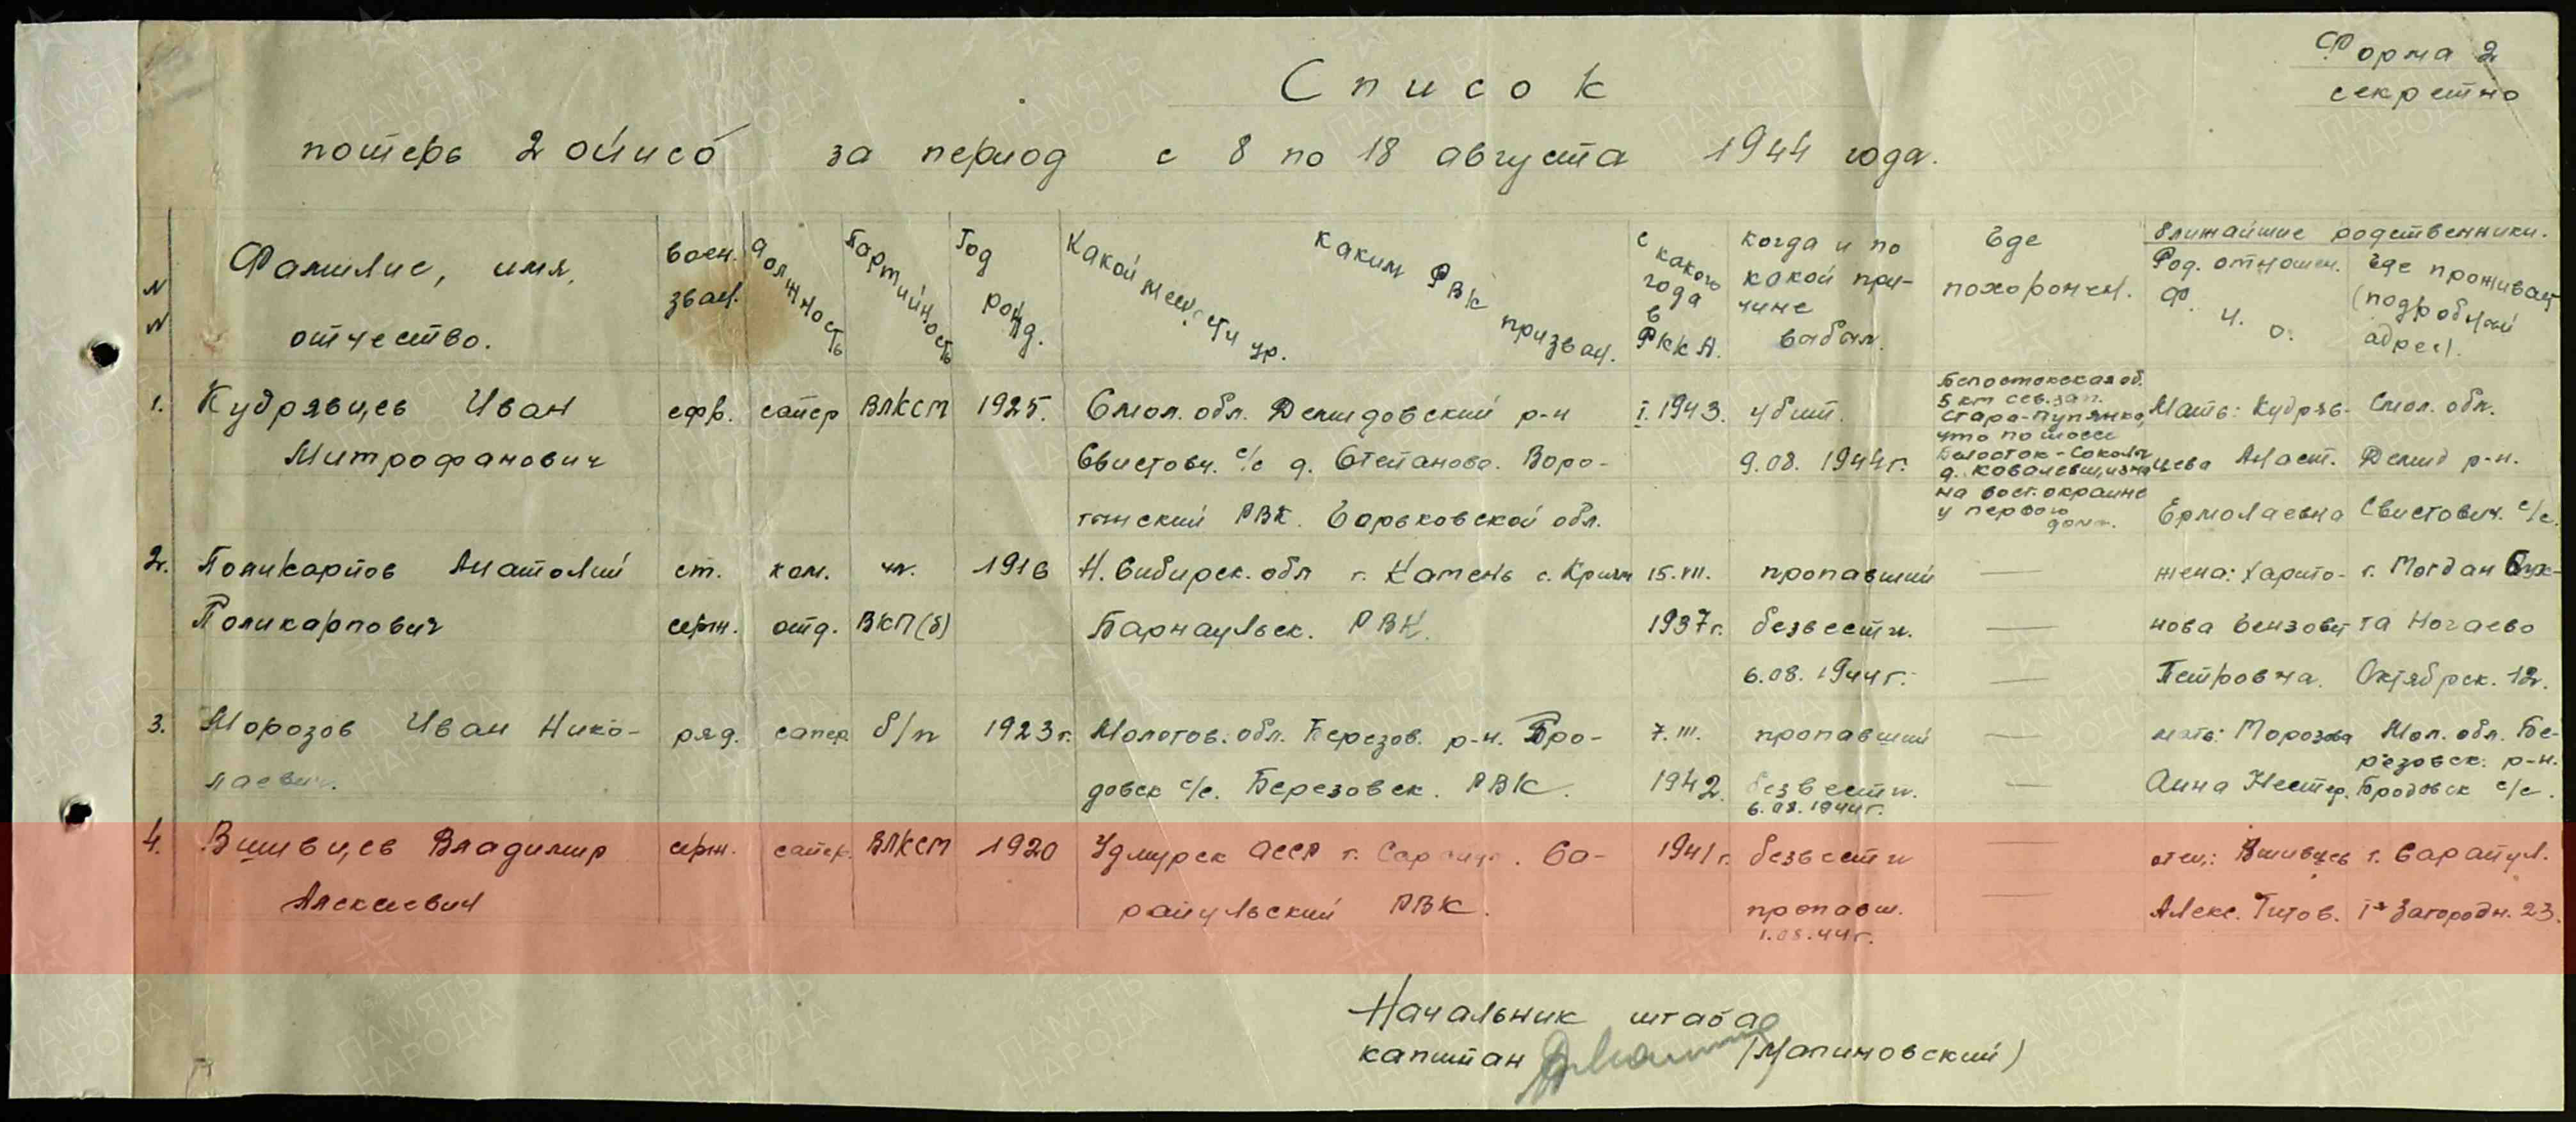 Форма 2
секретно
Список
потерь 2 оиисб за период с 8 по 18 августа 1944 года.
N N
Фамилие, имя, отчество.
воен. зван.
должность
Партийность
Год рожд.
Какой местности ур. каким РВК призван.
с какого года в РККА.
когда и по какой причине выбыл.
Где похоронен.
Ближайшие родственники.
Род. отношен. Ф. И. О.
Где проживает (подробный адрес).
1. Кудрявцев Иван Митрофанович
ефр. сапер ВЛКСМ 1925.
Смол. обл. Демидовский р-н
Свистовч. с/с д. Степаново. Воро-
тынский РВК. Горьковской обл.
I. 1943. убит.
9.08. 1944г.
Белостокская об.
5 км сев. зап.
что по шоссе
Белосток-Сокол
на вост. окраине
у первого
дома.
Мать: Кудряв-
цева Анаст.
Ермолаевна
Смол. обл.
Демид р-н.
Свистович. с/с.
2. Поликарпов Анатолий
Поликарпович
ст. серж.
ком. отд.
чл. ВКП(б)
1916
Н. Сибирск. обл г. Камень с.
Барнаульск. РВК.
15.
1937г.
пропавший
безвести.
6.08. 1944г.
жена: Харито-
нова
Петровна.
г. Магдан Бух-
та Ногаево
Октябрск. 12.
3. Морозов Иван Нико-
лаевич.
ряд. сапер. б/п 1923г.
Молотов. обл. Березов. р-н. Бро-
довск с/с. Березовск. РВК.
7. III.
1942.
пропавший
безвести.
6.08.1944г.
мать: Морозова
Анна Нестер.
Мол. обл. Бе-
резовск. р-н.
Бродовск с/с.
4. Вшивцев Владимир
Алексеевич
серж. сапер. ВЛКСМ 1920
Удмурск АССР г. Сарапул. Са-
рапульский РВК.
1941г.
безвести
пропавш.
1.08.44г.
отец: Вшивцев
Алекс. Титов.
г. Сарапул.
1я Загородн. 23.
Начальник штаба
капитан (Малиновский)
ПАМЯТЬ НАРОДА